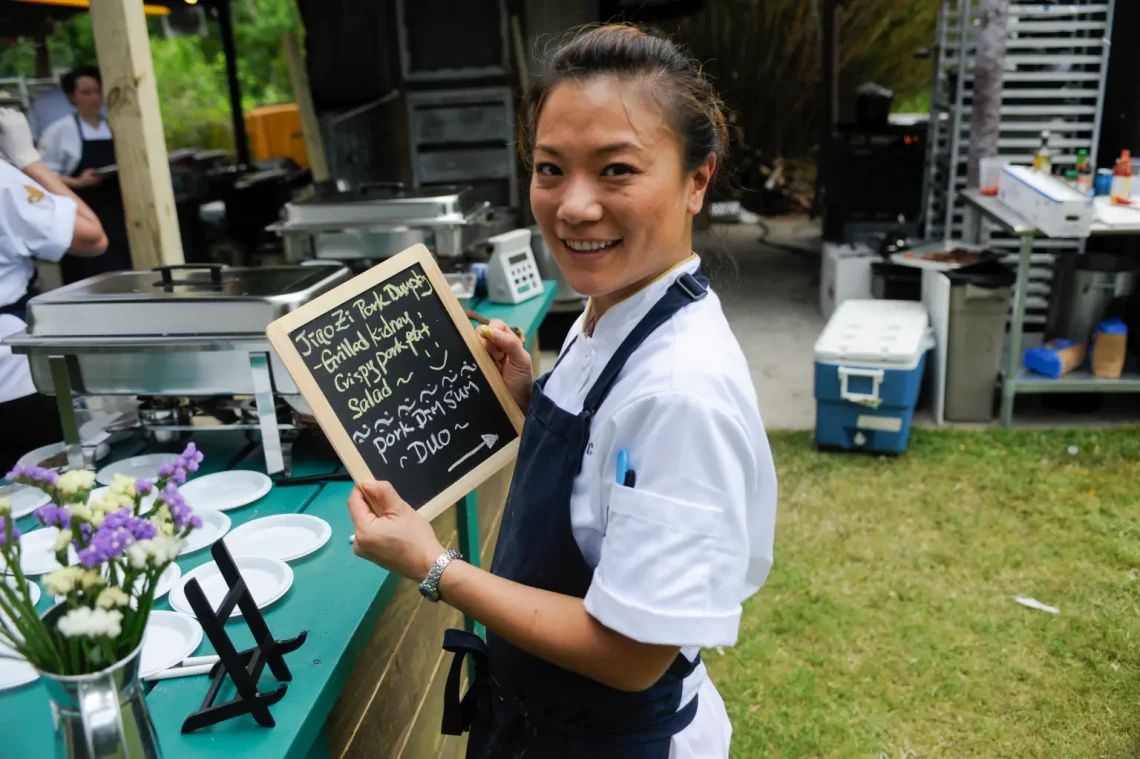 JiaoZi Pork Dumpling
-Grilled Kidney
Crispy pork-fat
Salad ~
~ ~ ~ ~ ~ ~
pork Dim Sum
~ Duo ~